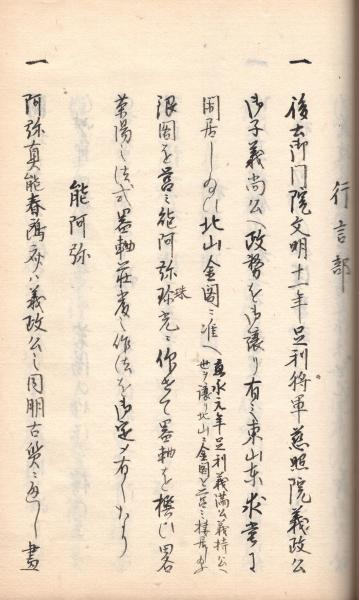 行言部
一 後土御門院文明十一年足利将軍慈照院義政公
御子義尚公ヘ政務を御譲り有て東山東求堂に
閑居し給ひ北山金閣に准へ
応永元年足利義満公義持公ヘ
世ヲ譲り北山ニ金閣を営ミ
銀閣を営ミ能阿弥珠光に作せて器軸を撰ひ
茶湯之法式器軸荘厳之作法を御定メ有しなり
能阿弥
一 阿弥真能春鴎斎ハ義政公之同朋古
画